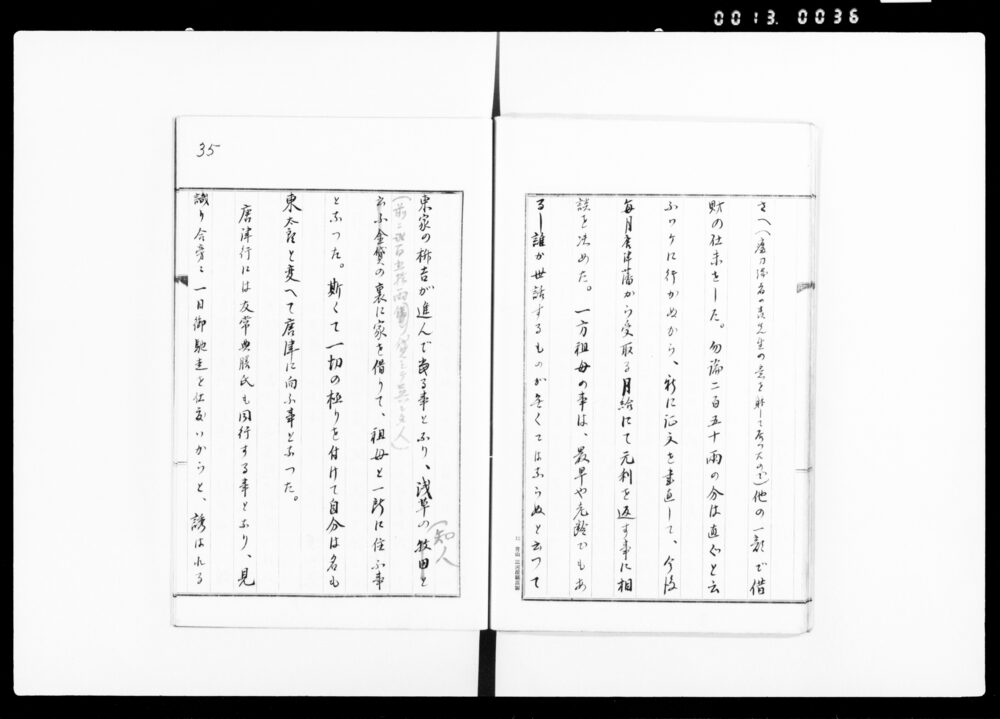 0013. 0036
さへ(
)他の一部で借
財の仕末をした。勿論二百五十両の分は直ぐと云
ふワケに行かぬから、新に証文を書直して、今後
毎月唐津藩から受取る月給にて元利を返す事に相
談を決めた。一方祖母の事は、最早や老齢でもあ
るし誰か世話するものが無くてはならぬと云つて
35
東家の
が進んで当る事となり、浅草の牧田と
(知人
(前
云ふ金貸の裏に家を借りて、祖母と一所に住ふ事
となつた。斯くて一切の極りを付けて自分は名も
東太郎と変へて唐津に向ふ事となつた。
唐津行には友常典膳氏も同行する事となり、見
識り合旁々一日御馳走を仕度いからと、誘はれる